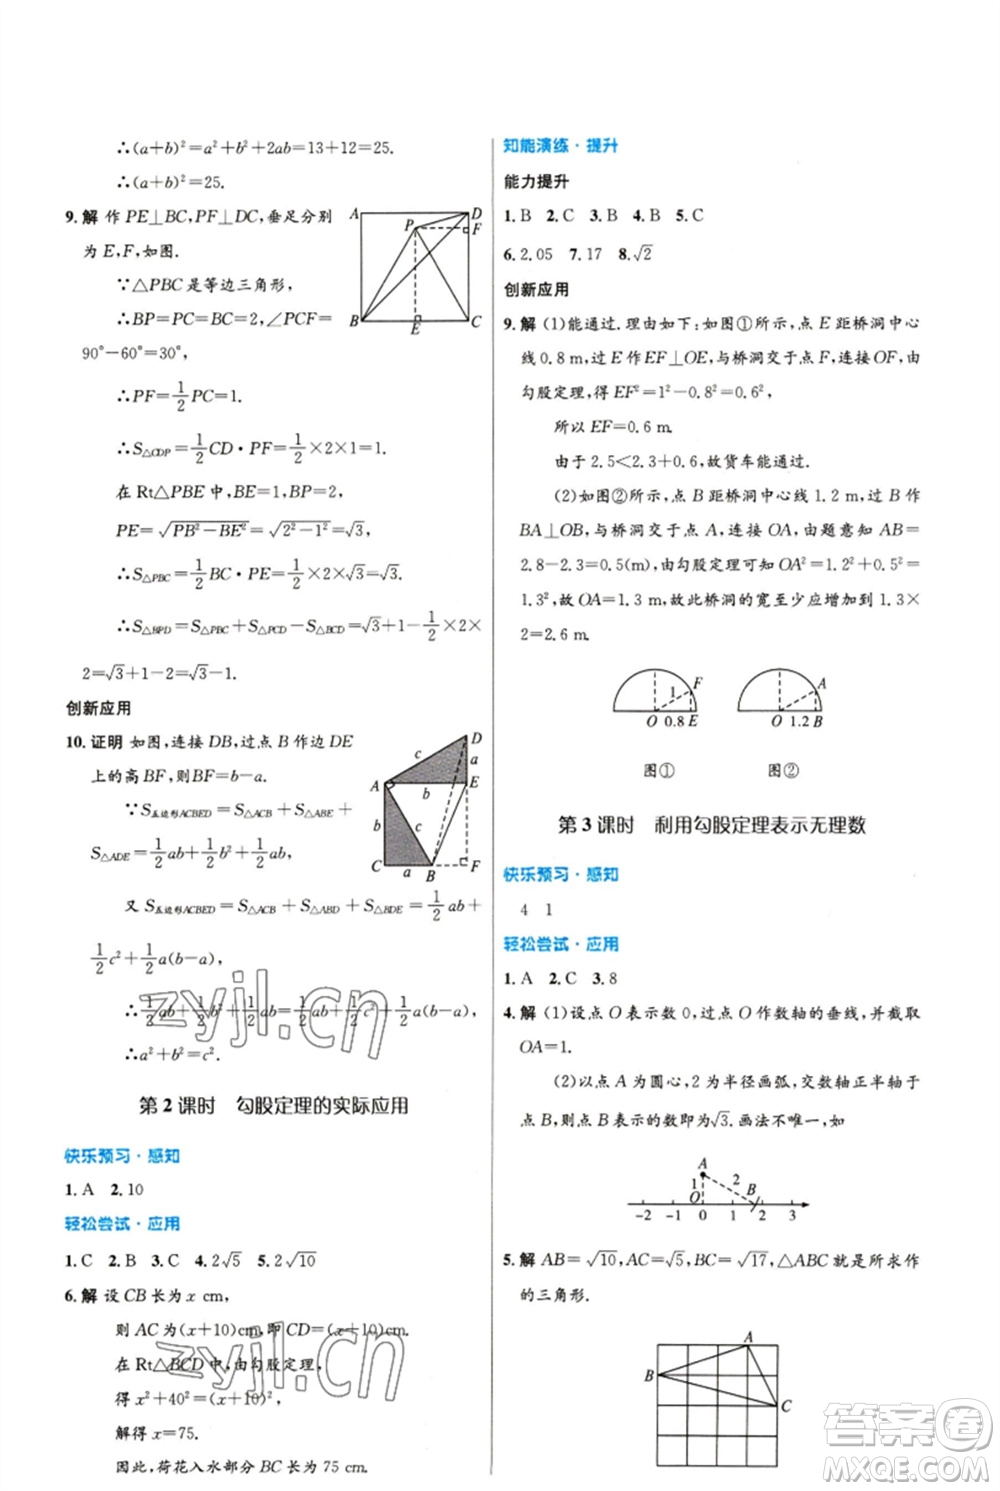 ∴(a+b)²=a²+b²+2ab=13+12=25.
∴(a+b)²=25.
9.解 作 PE⊥BC,PF⊥DC,垂足分别
为 E,F,如图.
∵△PBC 是等边三角形,
∴BP=PC=BC=2,∠PCF=
90°-60°=30°,
∴PF=1/2PC=1.
∴S△CDP=1/2CD·PF=1/2×2×1=1.
在 Rt△PBE 中,BE=1,BP=2,
PE=√(PB²-BE²)=√(2²-1²)=√3,
∴S△PBC=1/2BC·PE=1/2×2×√3=√3.
∴S△BPD=S△PBC+S△PCD-S△BCD=√3+1-1/2×2×
2=√3+1-2=√3-1.
A D P F B E C
创新应用
10.证明 如图,连接 DB,过点 B 作边 DE
上的高 BF,则BF=b-a.
∵S五边形ACBED=S△ACB+S△ABE+
S△ADE=1/2ab+1/2b²+1/2ab,
又 S五边形ACBED=S△ACB+S△ABD+S△BDE=1/2ab+
1/2c²+1/2a(b-a),
∴1/2ab+1/2b²+1/2ab=1/2ab+1/2c²+1/2a(b-a),
∴a²+b²=c².
D c a A b E b c C a B F
第 2 课时 勾股定理的实际应用
快乐预习·感知
1.A 2.10
轻松尝试·应用
1.C 2.B 3.C 4.2√5 5.2√10
6.解 设 CB 长为 x cm,
则 AC 为(x+10)cm,即 CD=(x+10)cm.
在 Rt△BCD 中,由勾股定理,
得 x²+40²=(x+10)²,
解得 x=75.
因此,荷花入水部分 CB 长为 75 cm.
知能演练·提升
能力提升
1.B 2.C 3.B 4.B 5.C
6.2.05 7.17 8.√2
创新应用
9.解 (1)能通过.理由如下:如图①所示,点 E 距桥洞中心
线 0.8 m,过 E 作 EF⊥OE,与桥洞交于点 F,连接 OF,由
勾股定理,得 EF²=1²-0.8²=0.6²,
所以 EF=0.6 m.
由于 2.5<2.3+0.6,故货车能通过.
(2)如图②所示,点 B 距桥洞中心线 1.2 m,过 B 作
BA⊥OB,与桥洞交于点 A,连接 OA,由题意知 AB=
2.8-2.3=0.5(m),由勾股定理可知 OA²=1.2²+0.5²=
1.3²,故 OA=1.3 m,因此桥洞的宽至少应增加为 1.3×
2=2.6 m.
1 F O 0.8 E
A O 1.2 B
图① 图②
第 3 课时 利用勾股定理表示无理数
快乐预习·感知
4 1
轻松尝试·应用
1.A 2.C 3.8
4.解 (1)设点 O 表示数 0,过点 O 作数轴的垂线,并截取
OA=1.
(2)以点 A 为圆心,2 为半径画弧,交数轴正半轴于
点 B,则点 B 表示的数即为√3.画法不唯一,如
A 1 2 O B
-2 -1 0 1 2 3
5.解 AB=√10,AC=√5,BC=√17,△ABC 就是所求作
的三角形.
A B C
zyjl.cn
zyjl.cn
答案圈
MXQE.COM